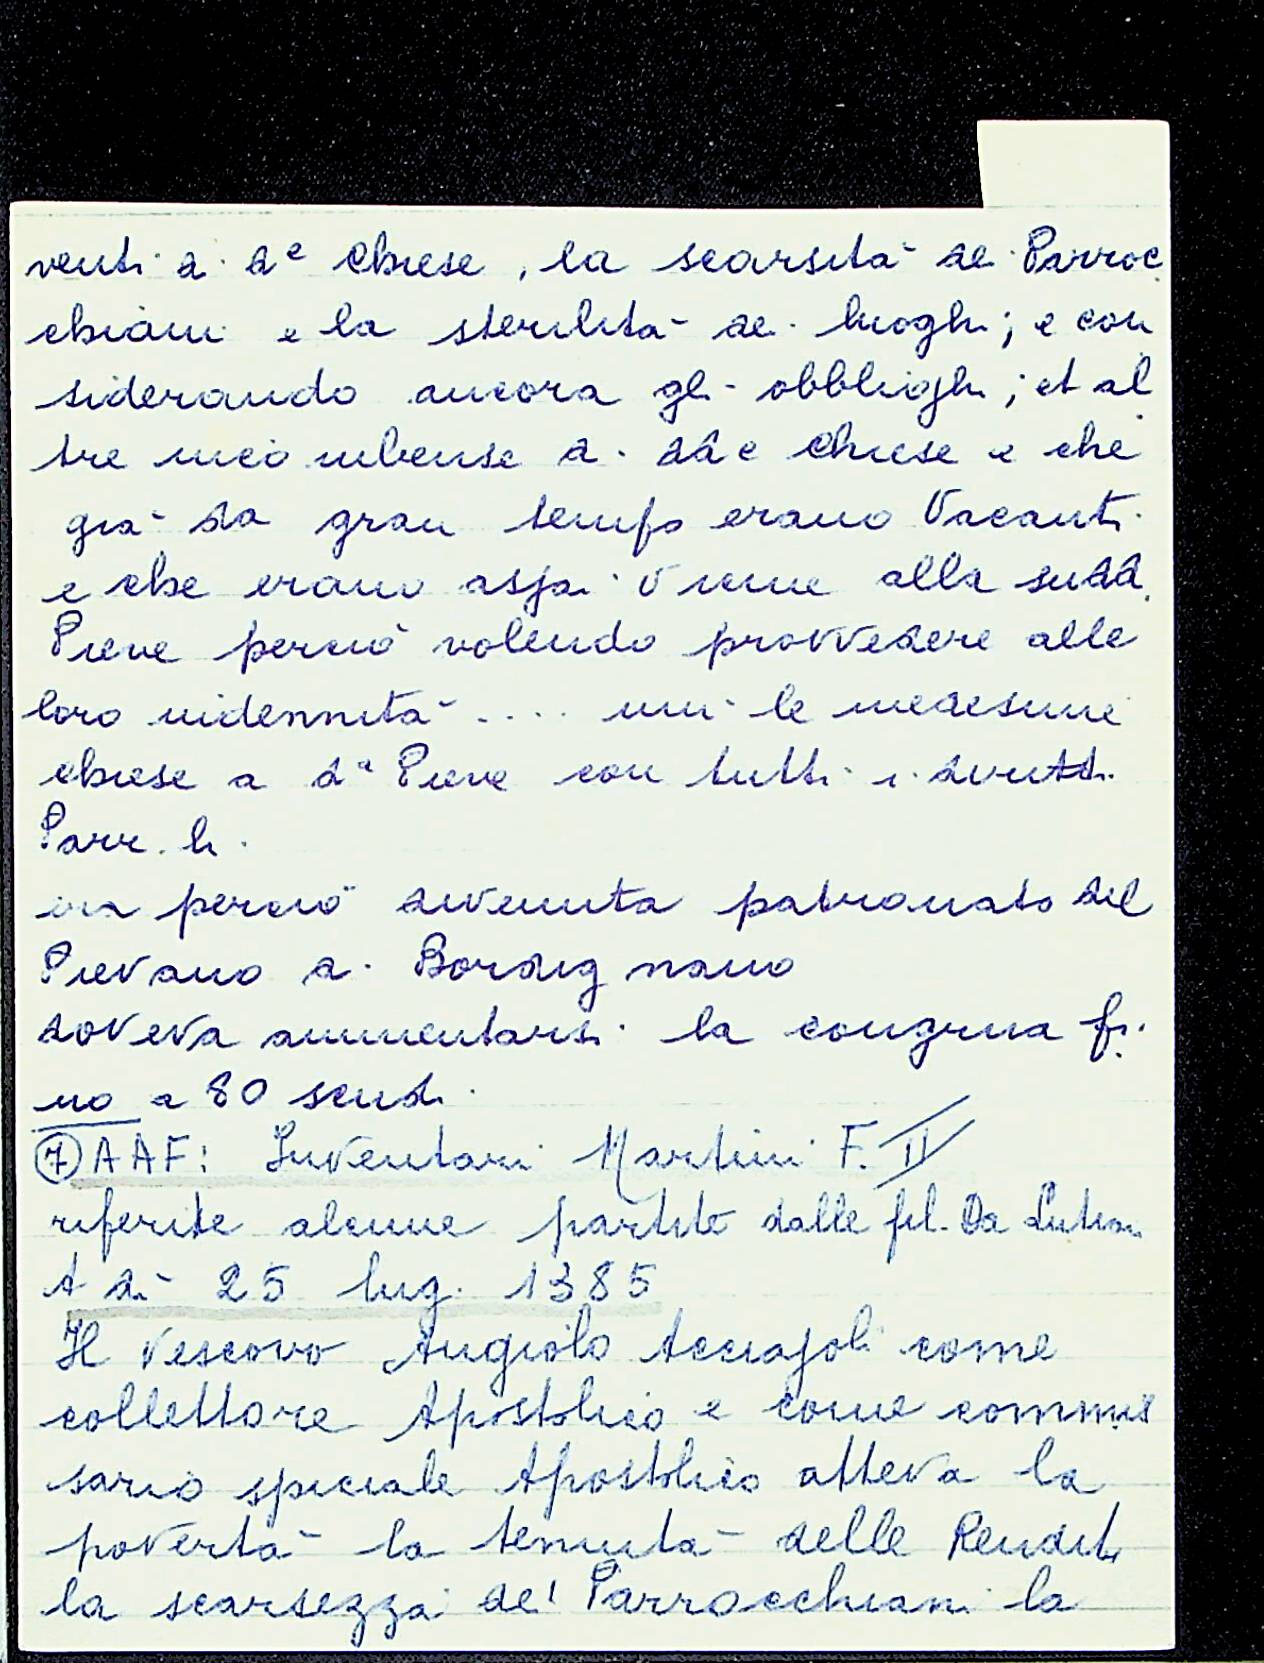 venti di de Chiese, la scarsità de Parroc
chiani e la sterilità de luoghi; e con
siderando ancora gli obblighi; et al
tre incombense di dde Chiese e che
già da gran tempo erano Vacanti
e che erano assai Vicine alla sudd.
Pieve perciò volendo provvedere alle
loro indennità .... unì le medesime
chiese a da Pieve con tutti i diritti
Parr.li.
era perciò divenuta patronato del
Pievano di Bordignano
doveva aumentarsi la congrua fi
no a 80 scudi.
(7) AAF: Inventari Martini F. II
riferite alcune partite dalle fil. Da
A dì 25 lug. 1385
Il Vescovo Angiolo Acciajoli come
collettore Apostolico e come commis
sario speciale Apostolico atteva la
povertà la tenuità delle Rendite
la scarsezza de' Parrocchiani la